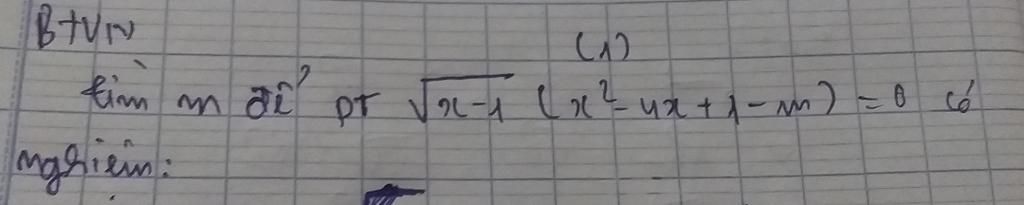 BTVN
(1)
tìm m để pt √x-1 (x²-4x+1-m) = 0 có
nghiệm: